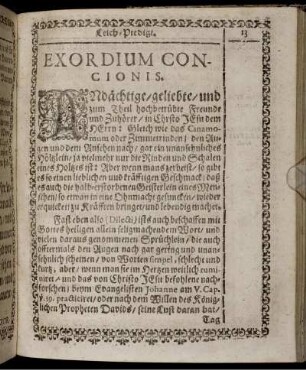 Leich-Predigt. 13
EXORDIUM CON-
CIONIS.
ANdächtige/geliebte/und
zum Theil hochbetrübte Freunde
und Zuhörer/ in Christo JEsu dem
HErrn: Gleich wie das Cinamo-
mum oder Zimmetrinden/ den Au-
gen und dem Ansehen nach/ gar ein unansehnliches
Höltzlein/ ja vielmehr nur die Rinden und Schalen
eines Holtzes ist: Aber wenn mans zerbeist/ so gibt
es so einen lieblichen und kräfftigen Geschmack: daß
es auch die halb erstorbenen Geisterlein eines Men-
schen/ so er wann in eine Ohnmacht gesuncken/ wieder
erquicket/ zu Kräfften bringet/ und lebendig machet.
Fast eben also (Dilecti) ists auch beschaffen mit
Gottes heiligen allein seligmachendem Wort/ und
vielen daraus genommenen Sprüchlein/ die auch
oftermals den Augen nach gar gering und unan-
sehnlich scheinen/ von Worten simpel/ schlecht und
kurtz/ aber/ wenn man sie im Hertzen weitlich rumi-
niret/ und das von Christo JEsu befohlene nach-
forschen/ beym Evangelisten Johanne am V. Cap.
v. 39. practiciret/ oder nach dem Willen des König-
lichen Propheten Davids/ seine Lust daran hat/
Tag